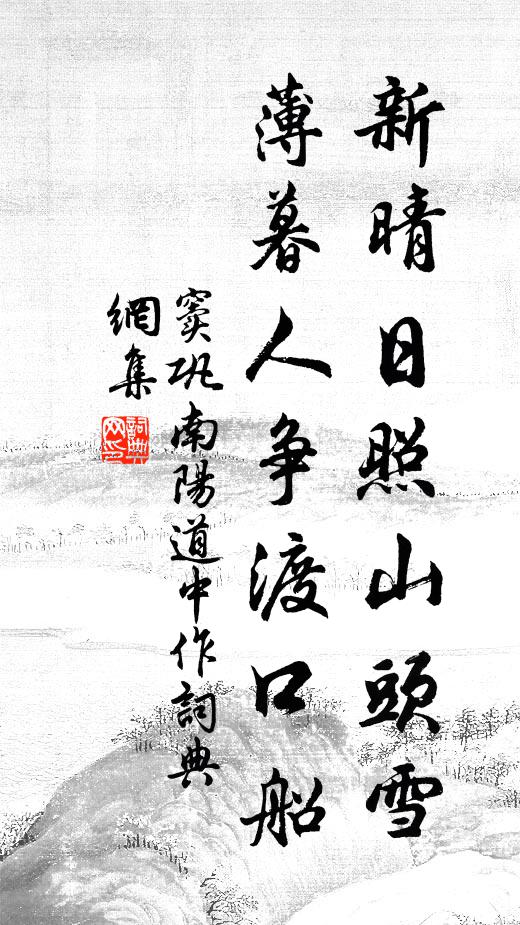 新晴日照山頭雪
薄暮人争渡口船
窦巩南陽道中作詞典
網集
詞典
网印